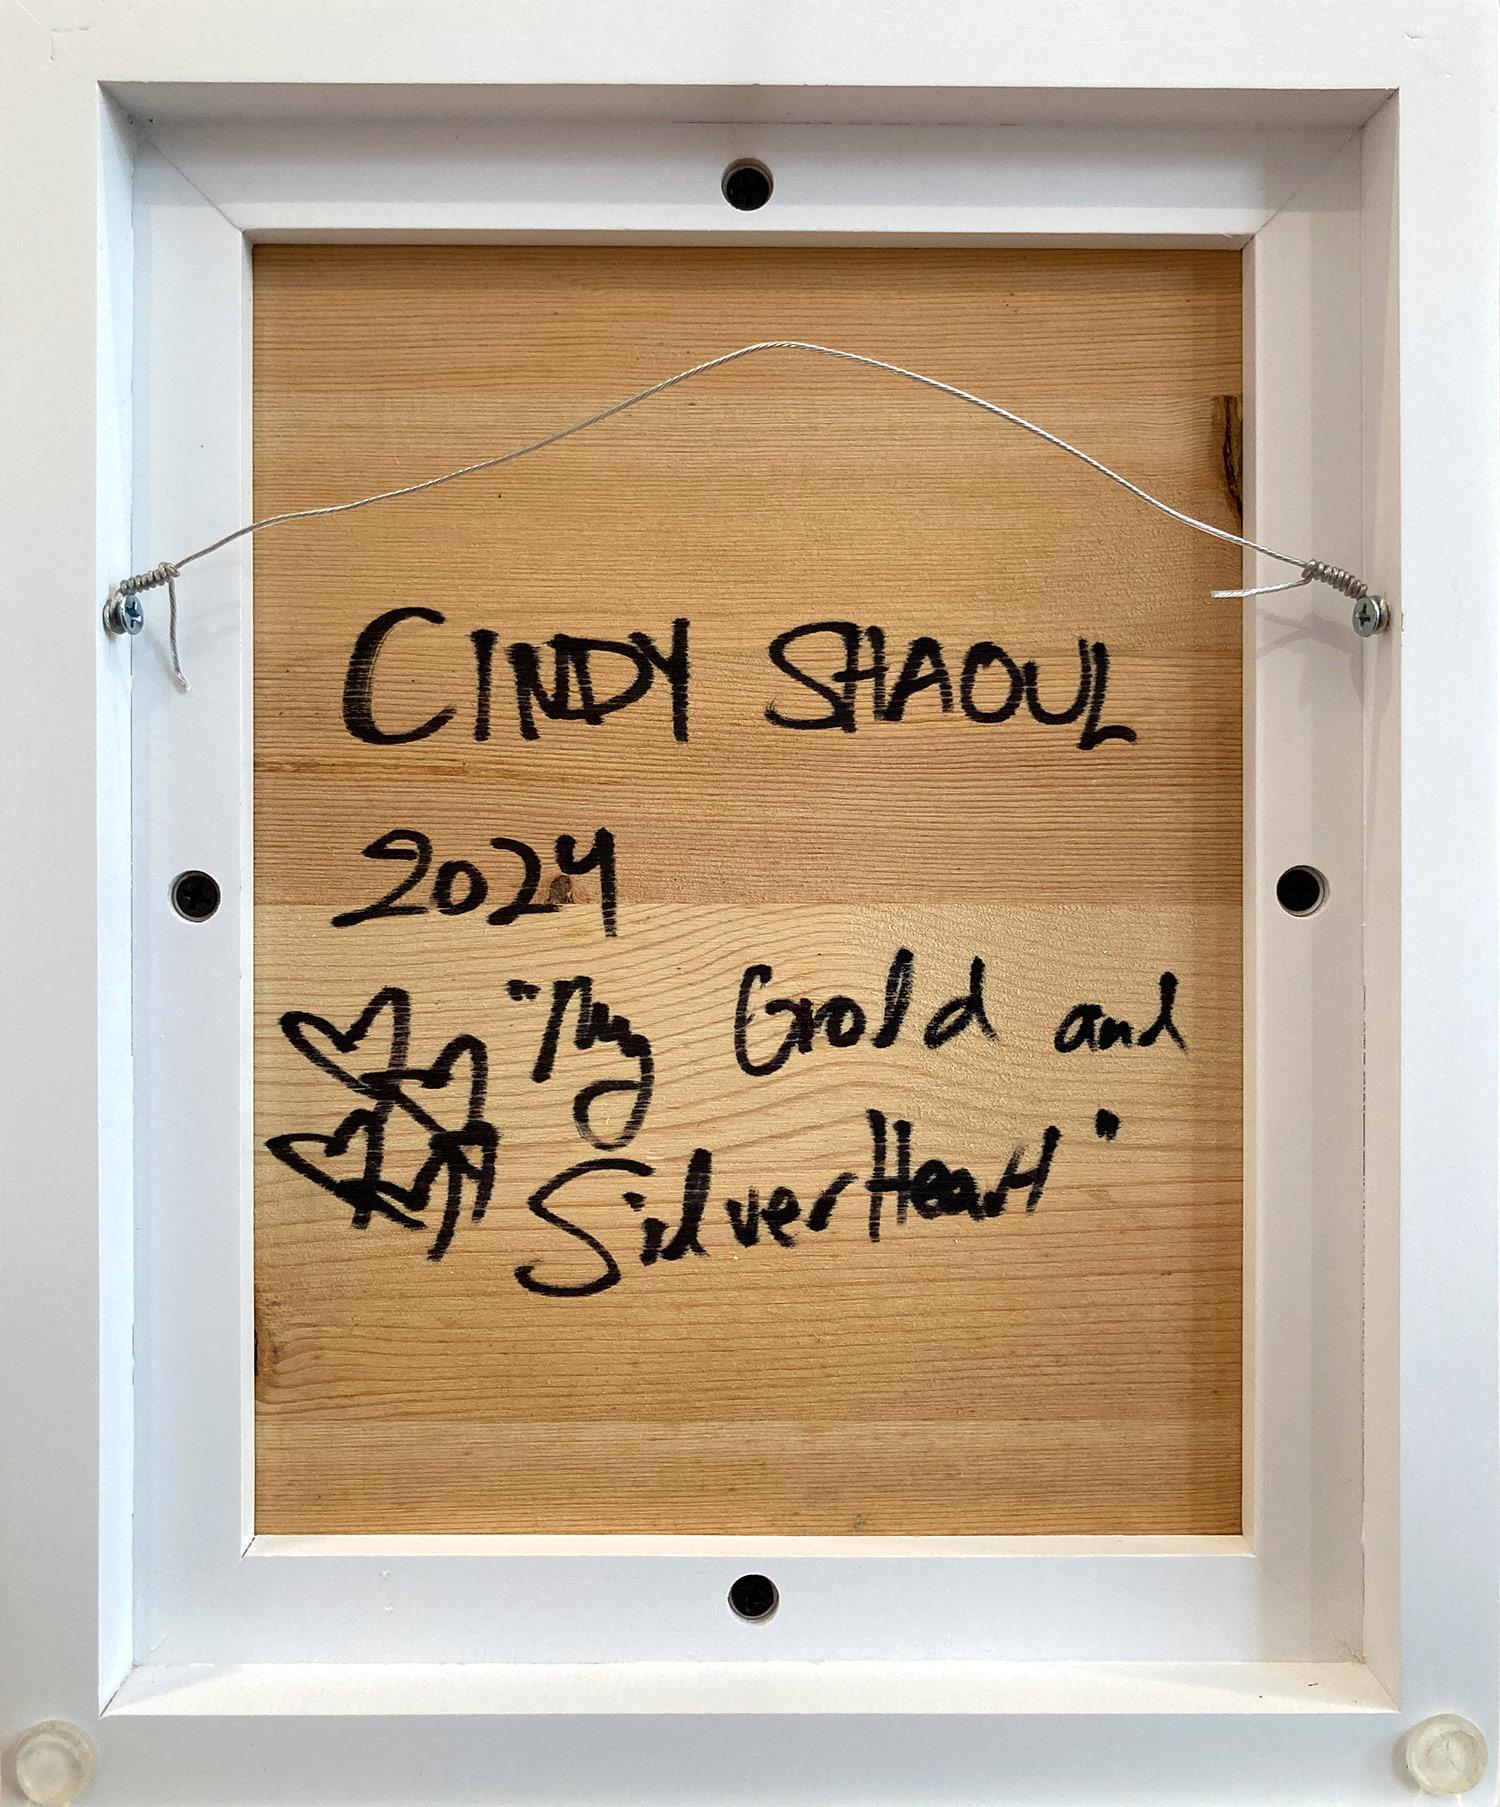 CINDY SHAOUL
2024
"My Gold and
Silver Heart"